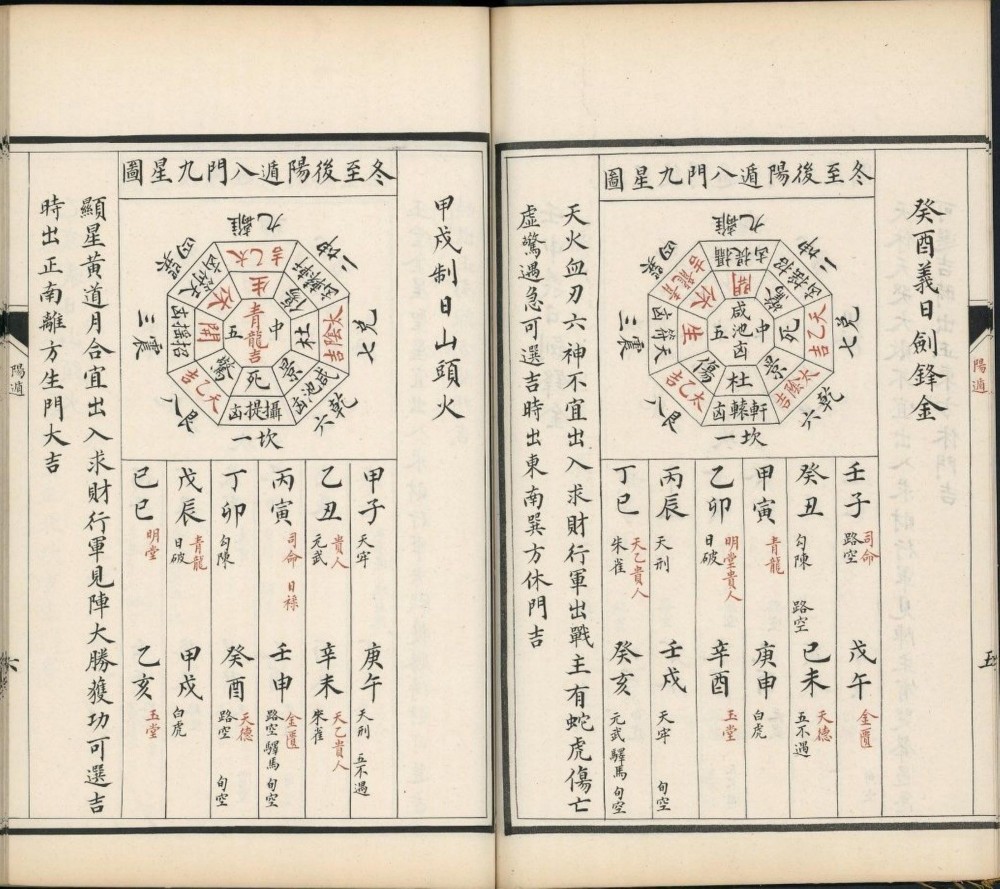 陽遁
五
癸酉義日劍鋒金
冬至後陽遁八門九星圖
離九
坤二
兌七
乾六
坎一
艮八
震三
巽四
攝提凶
招搖凶
天乙吉
太陰吉
軒轅凶
太乙吉
天符凶
青龍吉
開
驚
死
景
杜
傷
生
休
中五
咸池凶
壬子 司命 路空
戊午 金匱
癸丑 勾陳 路空
己未 天德 五不遇
甲寅 青龍
庚申 白虎
乙卯 明堂貴人 日破
辛酉 玉堂
丙辰 天刑
壬戌 天牢 旬空
丁巳 天乙貴人 朱雀
癸亥 元武 驛馬 旬空
天火血刃六神不宜出入求財行軍出戰主有蛇虎傷亡
虛驚遇急可選吉時出東南巽方休門吉
甲戌制日山頭火
冬至後陽遁八門九星圖
離九
坤二
兌七
乾六
坎一
艮八
震三
巽四
太乙吉
軒轅凶
太陰吉
咸池凶
攝提凶
天乙吉
招搖凶
天符凶
生
傷
杜
景
死
驚
開
休
中五
青龍吉
甲子 天牢
庚午 天刑 五不遇
乙丑 貴人 元武
辛未 天乙貴人 朱雀
丙寅 司命 日祿
壬申 金匱 路空 驛馬 旬空
丁卯 勾陳
癸酉 天德 路空 旬空
戊辰 青龍 日破
甲戌 白虎
己巳 明堂
乙亥 玉堂
顯星黃道月合宜出入求財行軍見陣大勝獲功可選吉
時出正南離方生門大吉
陽遁
六